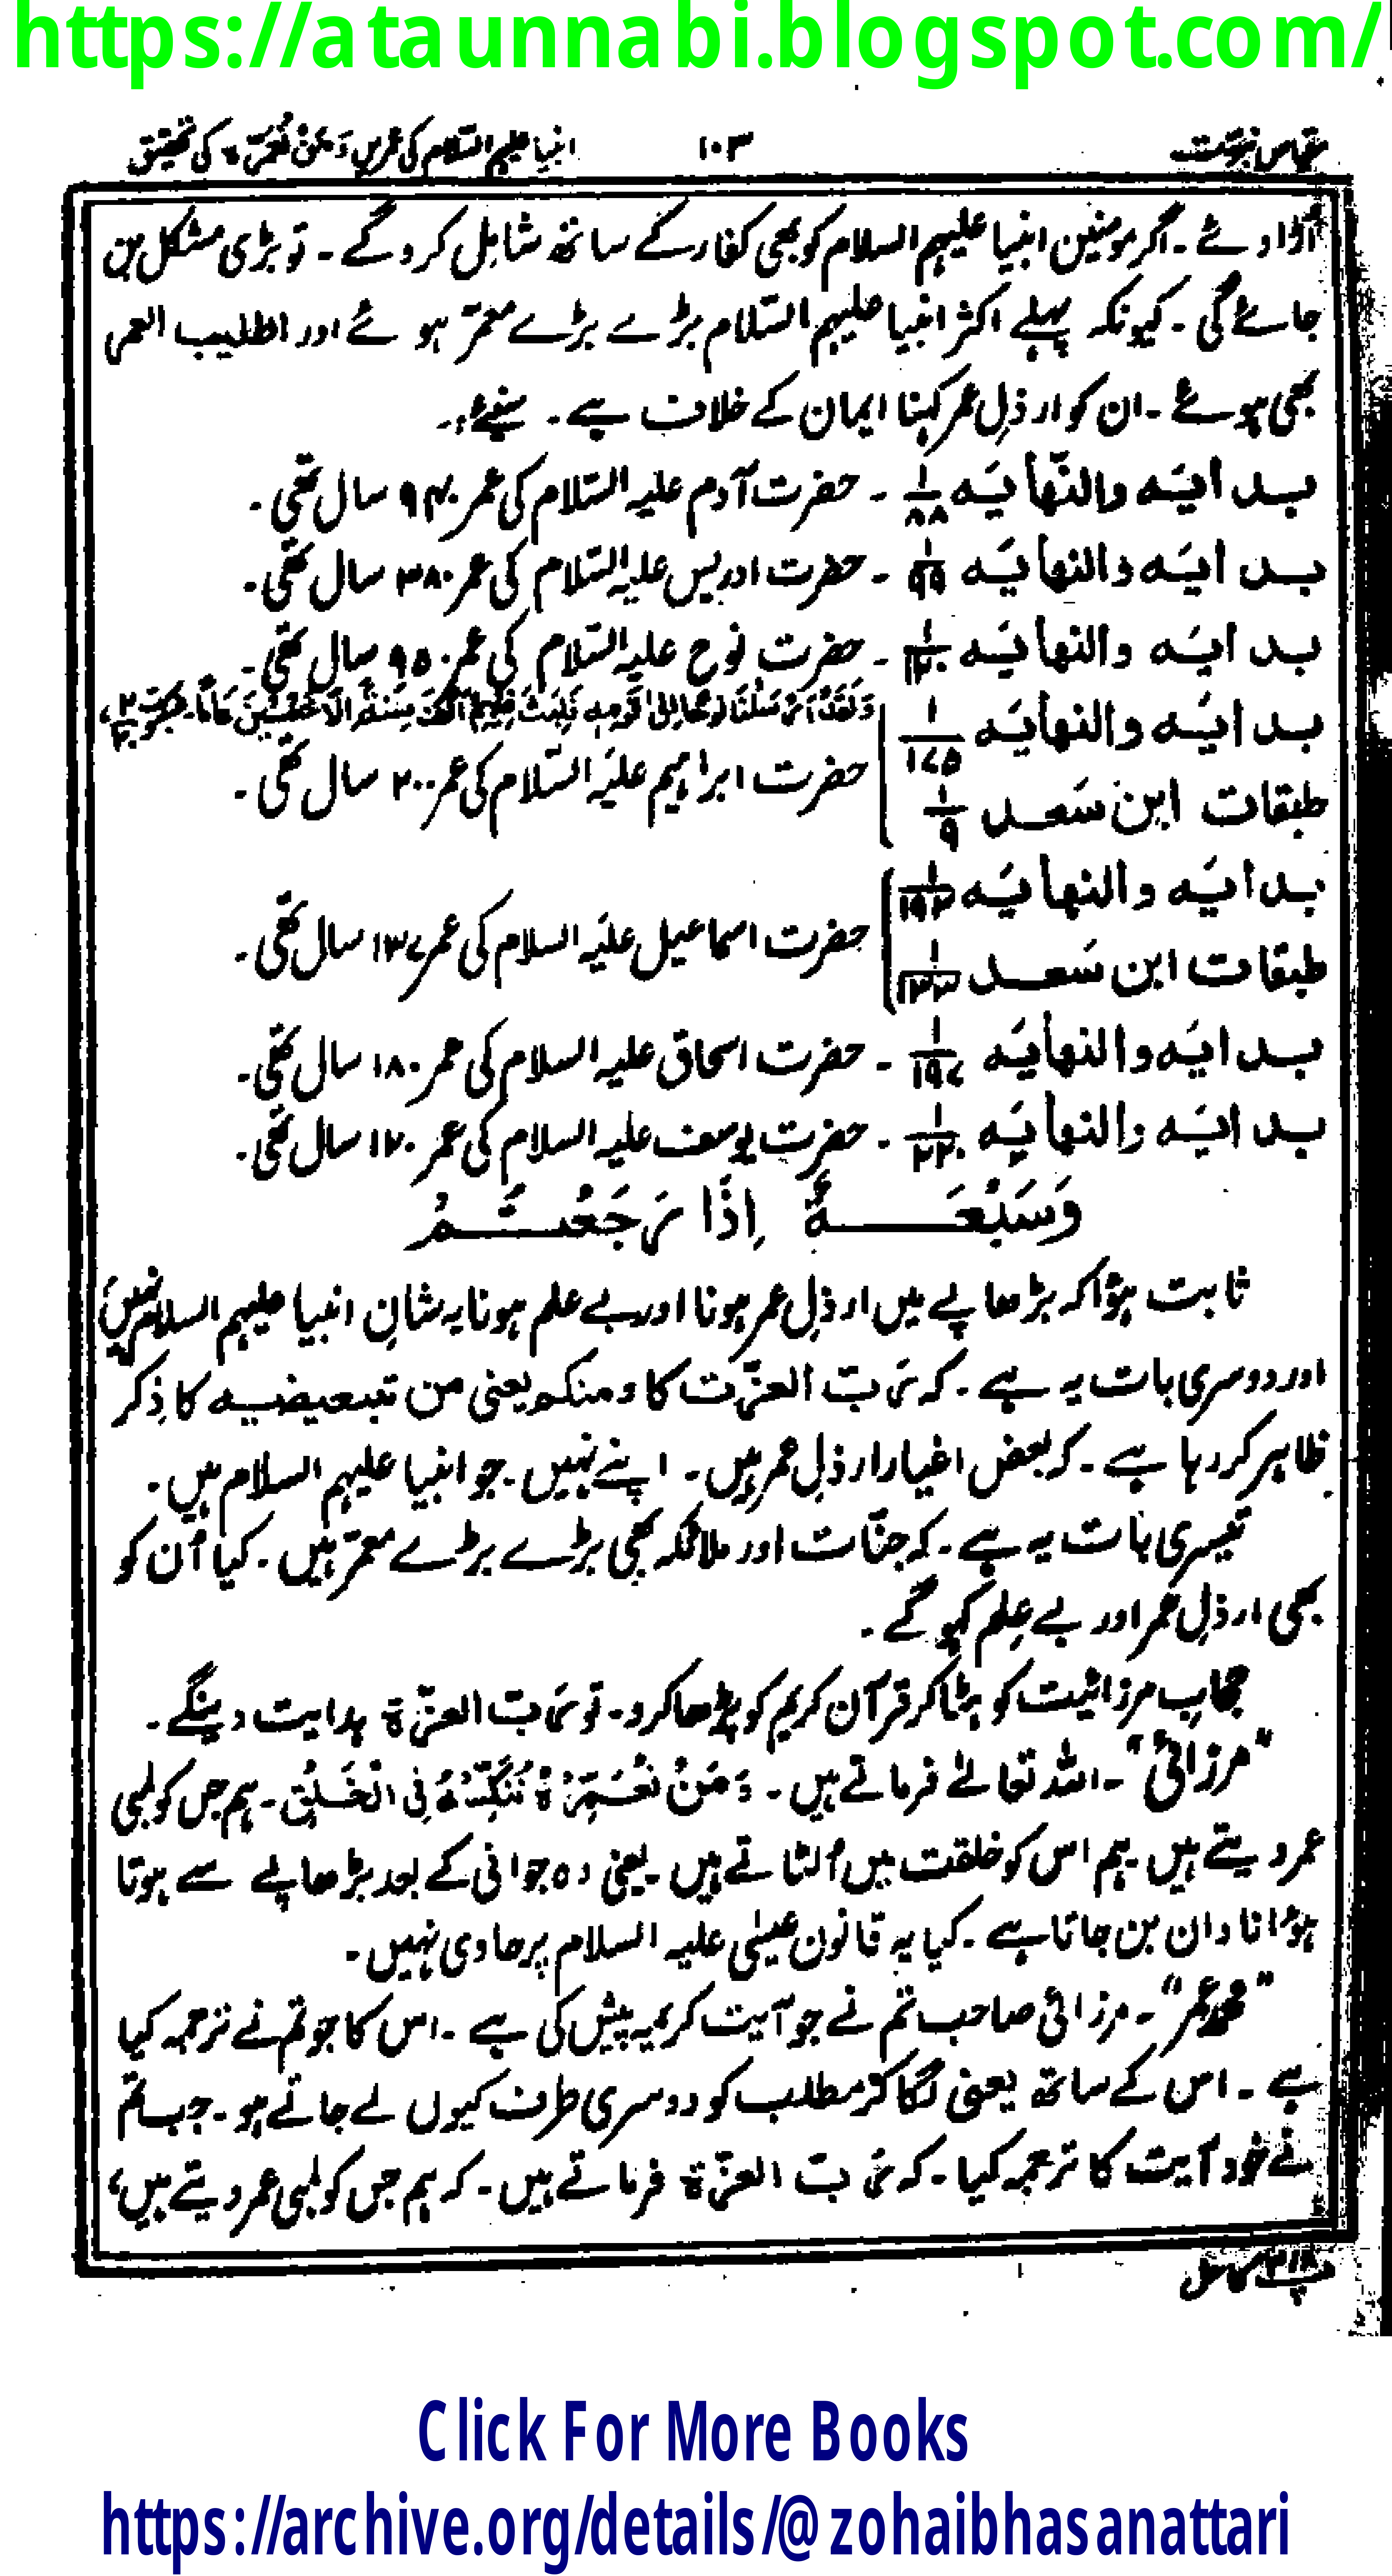 https://ataunnabi.blogspot.com/
مقیاس نبوت ۱۰۳ انبیا علیہم السلام کی عمریں وَمَنْ نُعَمِّرْہُ کی تحقیق
اُڑا دئے ۔ اگر مومنین انبیا علیہم السلام کو بھی کفار کے ساتھ شامل کرو گے ۔ تو بڑی مشکل بن
جائے گی ۔ کیونکہ پہلے اکثر انبیا علیہم السّلام بڑے بڑے معمّر ہوئے اور اطلیب العمر
بھی ہوئے ۔ ان کو ارذلِ عمر کہنا ایمان کے خلاف ہے ۔ سنیئے :۔
بدایَہ والنّہایَہ ۱/۸۸ ۔ حضرت آدم علیہ السّلام کی عمر ۹۴۰ سال تھی ۔
بدایَہ والنہایَہ ۱/۹۹ ۔ حضرت ادریس علیہ السّلام کی عمر ۳۸۰ سال تھی ۔
بدایَہ والنہایَہ ۱/۱۲۰ ۔ حضرت نوح علیہ السّلام کی عمر ۹۵۰ سال تھی ۔
وَلَقَدْ اَرْسَلْنَا نُوْحًا اِلٰی قَوْمِہٖ فَلَبِثَ فِیْہِمْ اَلْفَ سَنَۃٍ اِلَّا خَمْسِیْنَ عَامًا ۔ عنکبوت
بدایَہ والنہایَہ ۱/۱۷۵
طبقات ابن سَعد ۱/۹
حضرت ابراہیم علیَہ السّلام کی عمر ۲۰۰ سال تھی ۔
بدایَہ والنہایَہ ۱/۱۹۳
طبقات ابن سَعد
حضرت اسماعیل علیَہ السلام کی عمر ۱۳۷ سال تھی ۔
بدایَہ والنہایَہ ۱/۱۹۷ ۔ حضرت اسحاق علیہ السلام کی عمر ۱۸۰ سال تھی ۔
بدایَہ والنہایَہ ۱/۲۲۰ ۔ حضرت یوسف علیہ السلام کی عمر ۱۲۰ سال تھی ۔
وَسَبْعَۃٌ اِذَا رَجَعْتُمْ
ثابت ہؤا کہ بڑھاپے میں ارذلِ عمر ہونا اور بے علم ہونا یہ شانِ انبیا علیہم السلام نہیں
اور دوسری بات یہ ہے ۔ کہ رَبّ العزّت کا ومنکم یعنی من تبعیضیہ کا ذِکر
ظاہر کر رہا ہے ۔ کہ بعض اغیار ارذلِ عمر ہیں ۔ اپنے نہیں ۔ جو انبیا علیہم السلام ہیں ۔
تیسری بات یہ ہے ۔ کہ جنّات اور ملائکہ بھی بڑے بڑے معمّر ہیں ۔ کیا اُن کو
بھی ارذلِ عمر اور بے عِلم کہو گے ۔
حجابِ مرزائیت کو ہٹا کر قرآن کریم کو پڑھا کرو ۔ تو رَبّ العزّۃ ہدایت دینگے ۔
”مرزائی“ ۔ اللہ تعالےٰ فرماتے ہیں ۔ وَمَنْ نُعَمِّرْہُ نُنَکِّسْہُ فِی الْخَلْقِ ۔ ہم جس کو لمبی
عمر دیتے ہیں ۔ ہم اس کو خلقت میں اُلٹاتے ہیں ۔ یعنی وہ جوانی کے بعد بڑھاپے سے ہوتا
ہؤا نادان بن جاتا ہے ۔ کیا یہ قانون عیسٰی علیہ السلام پر حاوی نہیں ۔
”محمد عمر“ ۔ مرزائی صاحب تم نے جو آیت کریمہ پیش کی ہے ۔ اس کا جو تم نے ترجمہ کیا
ہے ۔ اس کے ساتھ یعنی لگا کر مطلب کو دوسری طرف کیوں لے جاتے ہو ۔ جب تم
نے خود آیت کا ترجمہ کیا ۔ کہ رَبّ العزّۃ فرماتے ہیں ۔ کہ ہم جس کو لمبی عمر دیتے ہیں ،
Click For More Books
https://archive.org/details/@zohaibhasanattari